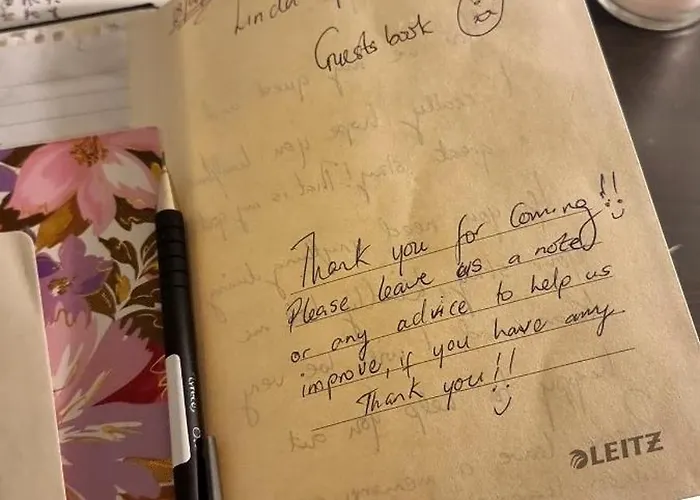 Linda
Guests book
Thank you for Coming!!
Please leave us a note
or any advice to help us
improve, if you have any
Thank you!!
LEITZ